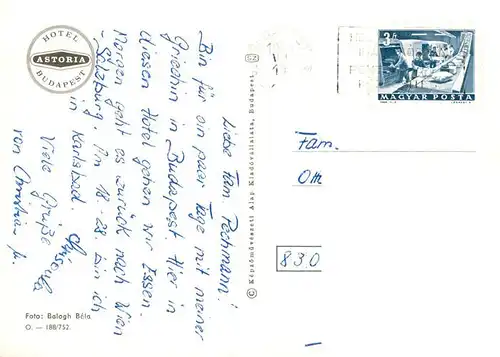 HOTEL
ASTORIA
BUDAPEST
3 Ft
MAGYAR POSTA
Liebe Fam. Pechmann!
Bin für ein paar Tage mit meiner
Griechin in Budapest. Hier in
diesem Hotel gehen wir Essen.
Morgen geht es zurück nach Wien
- Salzburg. Am 18-28. bin ich
in Karlsbad.
Viele Grüße
von
© Képzőművészeti Alap Kiadóvállalata, Budapest
Fam.
Ott
830
Foto: Balogh Béla
O. — 188/752